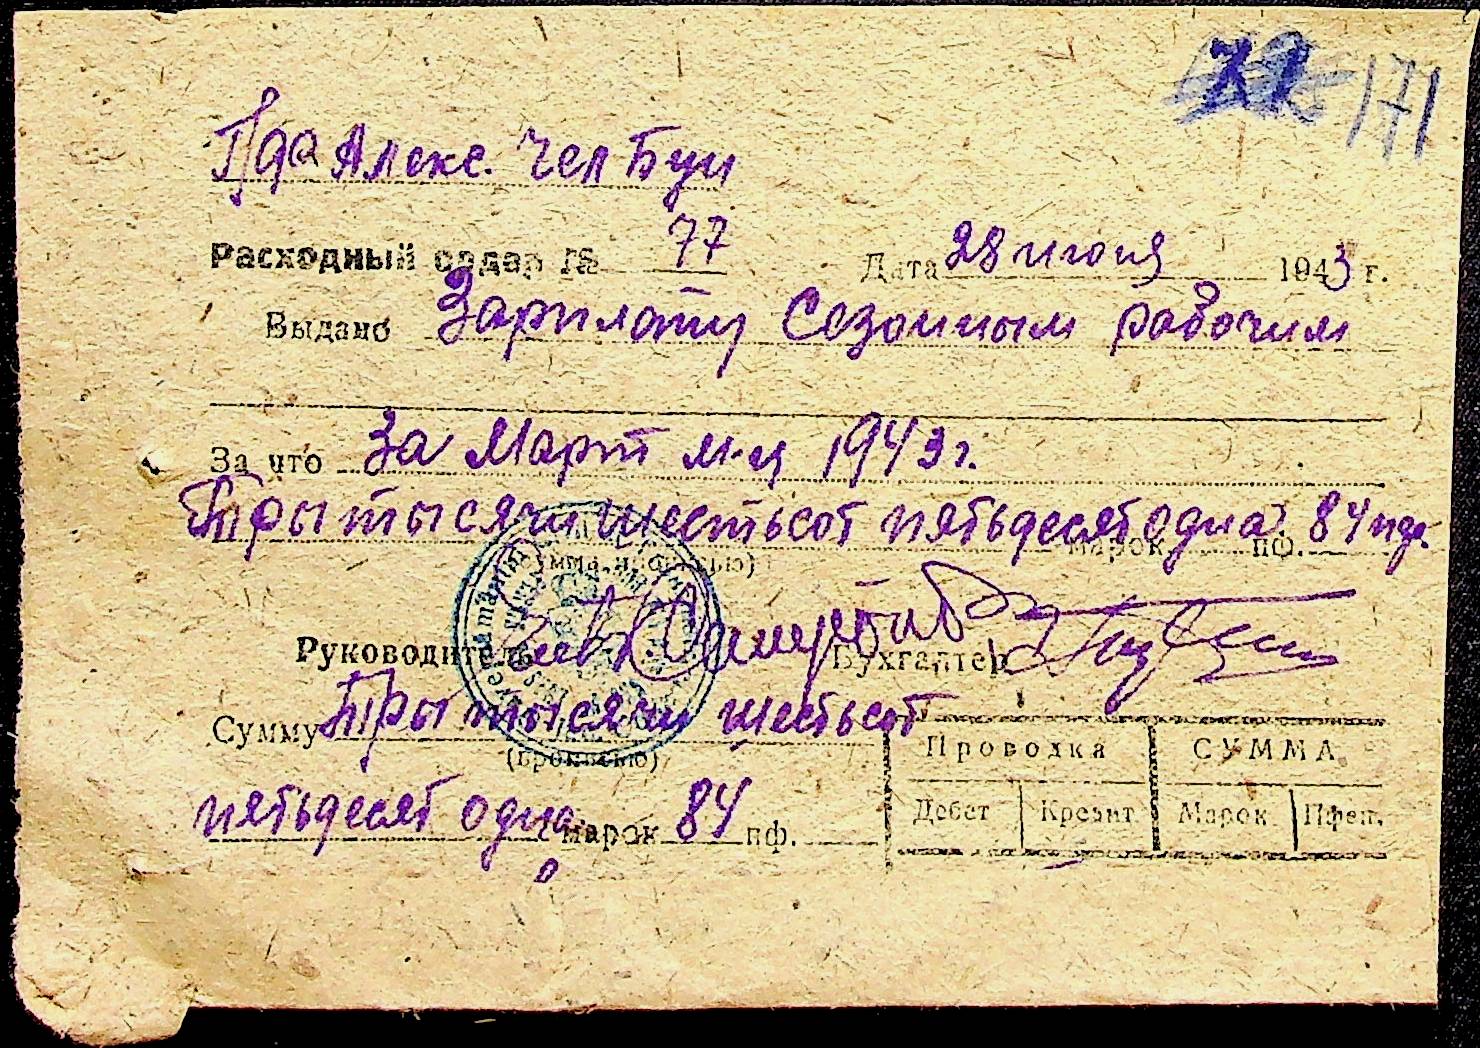 171
Пда Алекс. Чел Буи
Расходный ордер № 77 Дата 28 июня 1943 г.
Выдано Зарплату Сезонным рабочим
За что За Март м-ц 1943 г.
Тры тысячи шестьсот пятьдесят одна марок 84 пф. пф.
(Сумма прописью)
Руководитель Бухгалтер
Сумму Тры тысячи шестьсот
(прописью)
пятьдесят одна марок 84 пф.
Проводка СУММА
Дебет Кредит Марок Пфен.